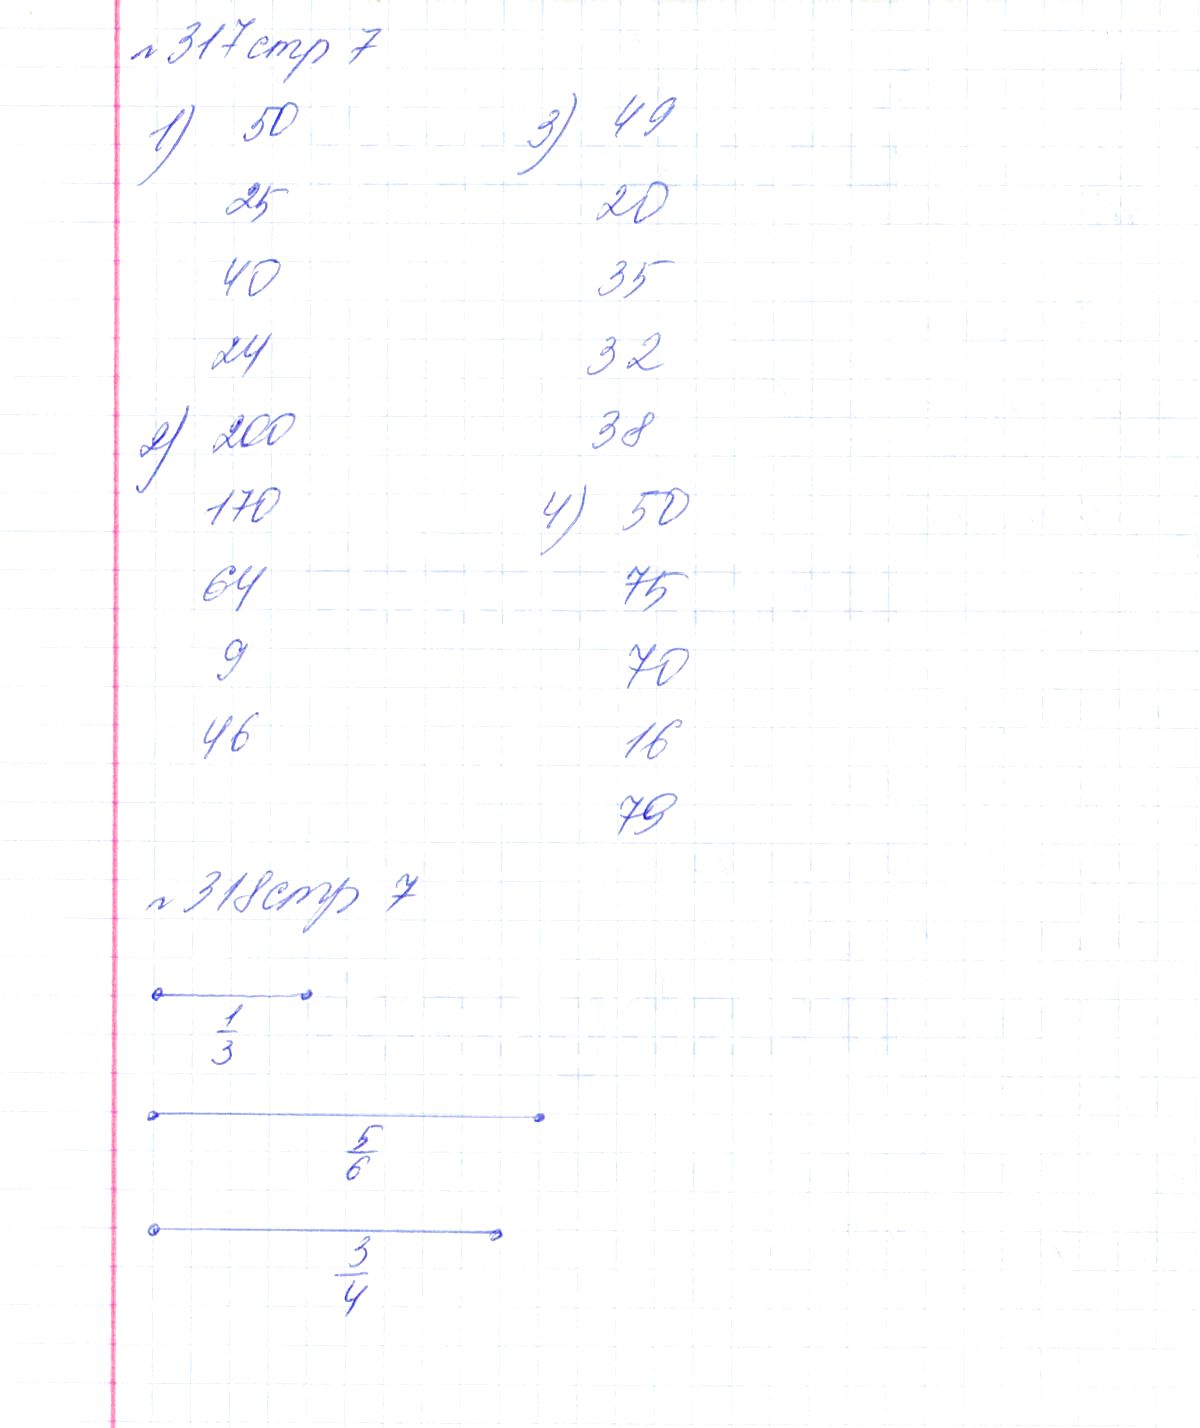 №317 стр 7
1) 50
25
40
24
2) 200
170
64
9
46
3) 49
20
35
32
38
4) 50
75
70
16
79
№318 стр 7
1/3
5/6
3/4